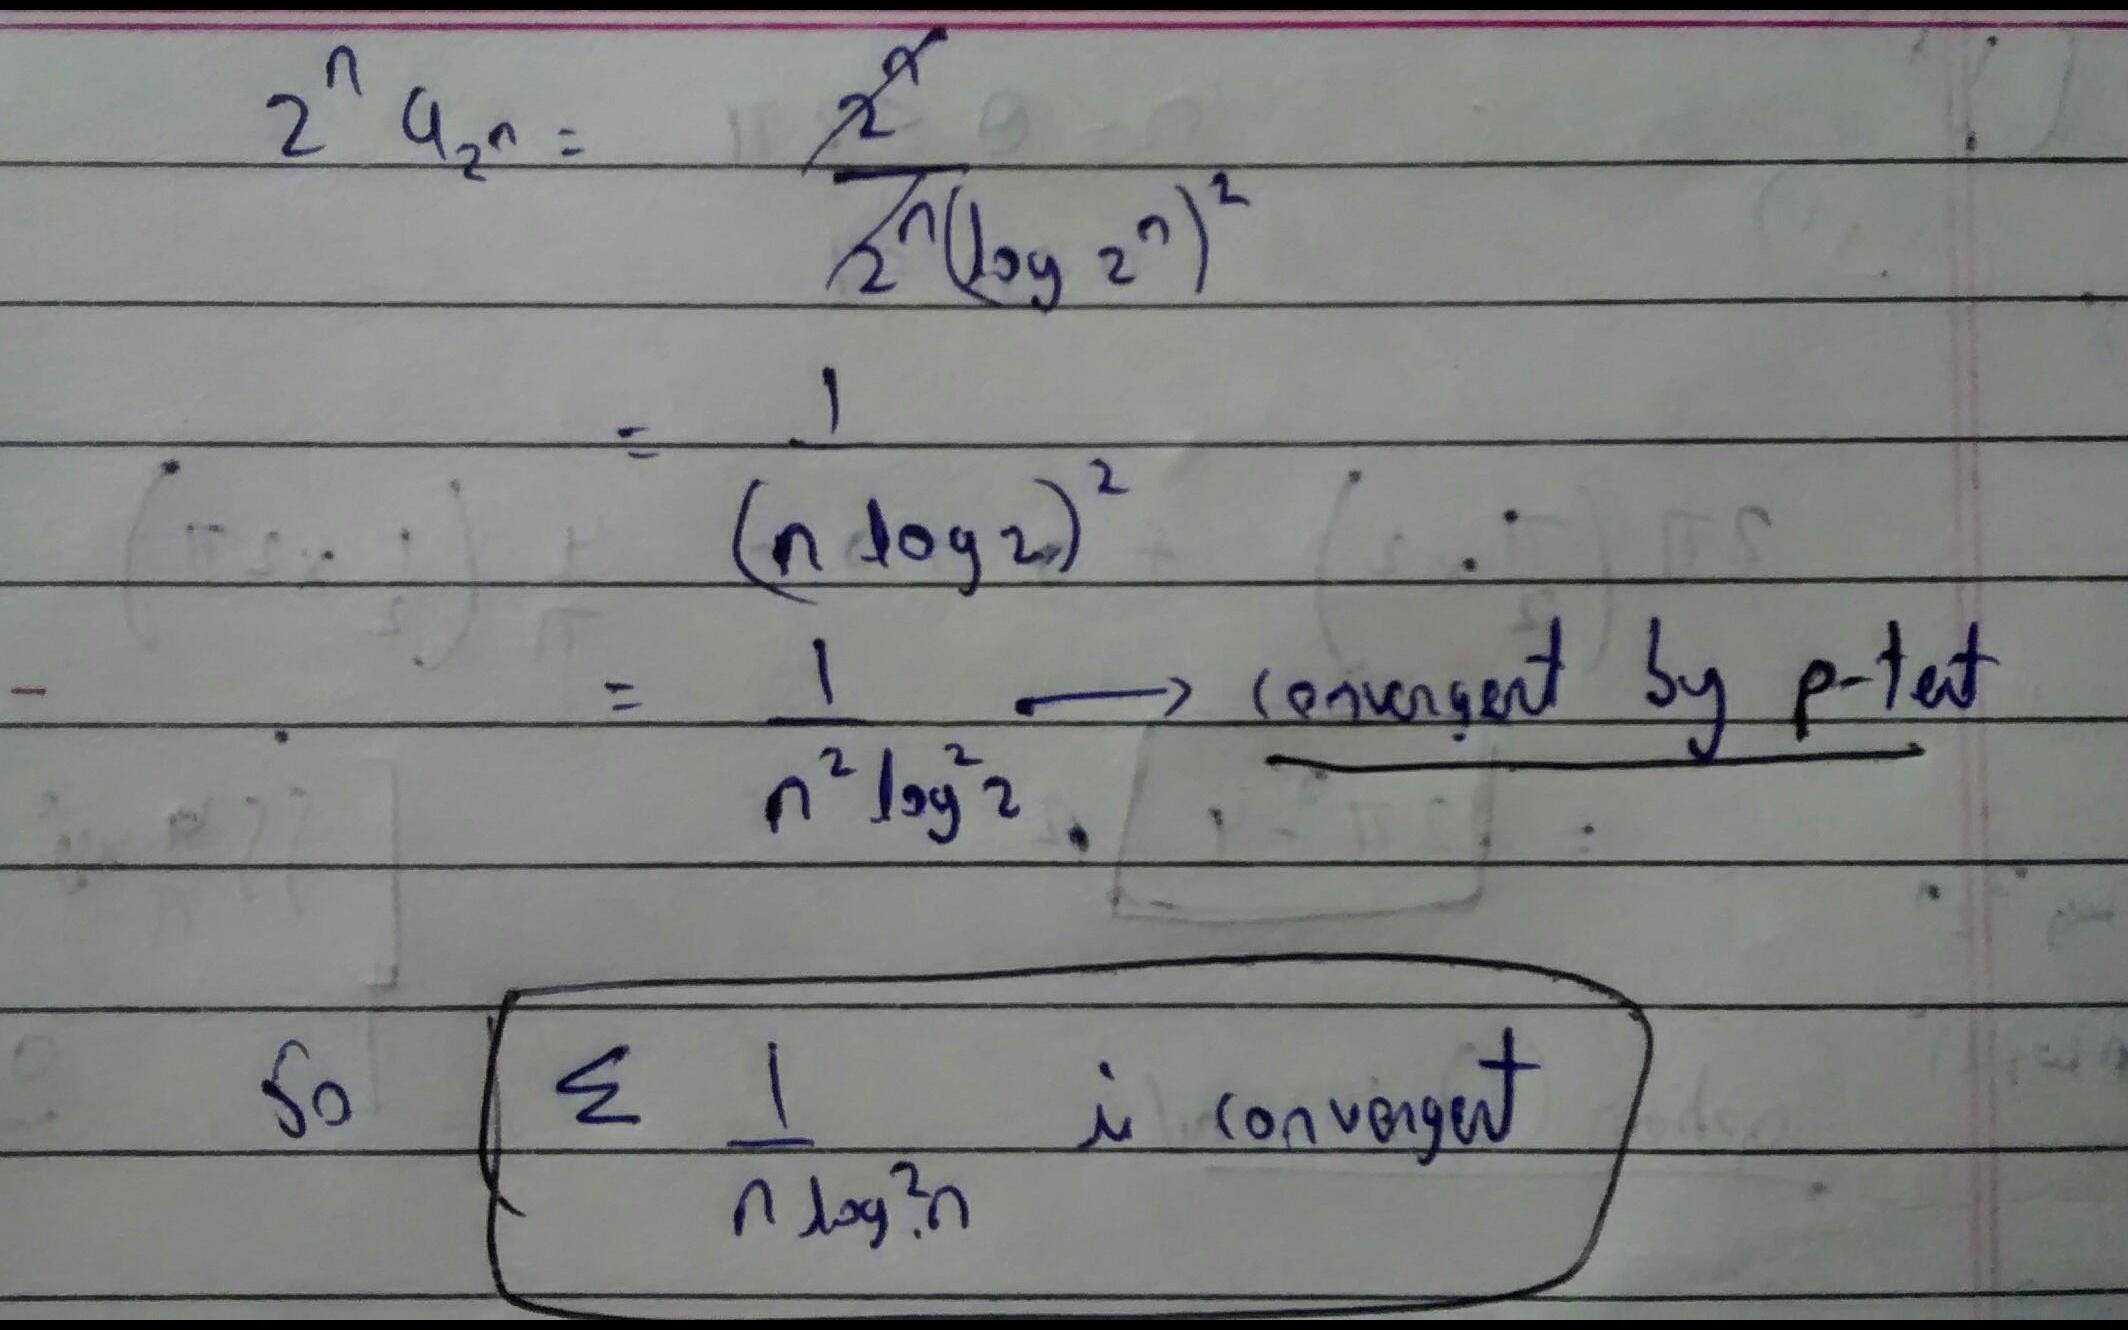 2ⁿ a₂ⁿ = 2ⁿ / 2ⁿ (log 2ⁿ)²
= 1 / (n log 2)²
= 1 / n² log² 2 → convergent by p-test
So Σ 1 / n log² n is convergent